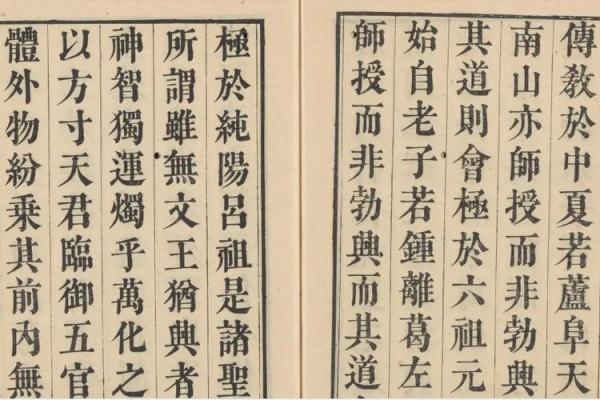 傳敎於中夏若蘆阜天
南山亦師授而非勃興
其道則會極於六祖元
始自老子若鍾離葛左
師授而非勃興而其道
極於純陽呂祖是諸聖
所謂雖無文王猶興者
神智獨運燭乎萬化之
以方寸天君臨御五官
體外物紛乗其前內無